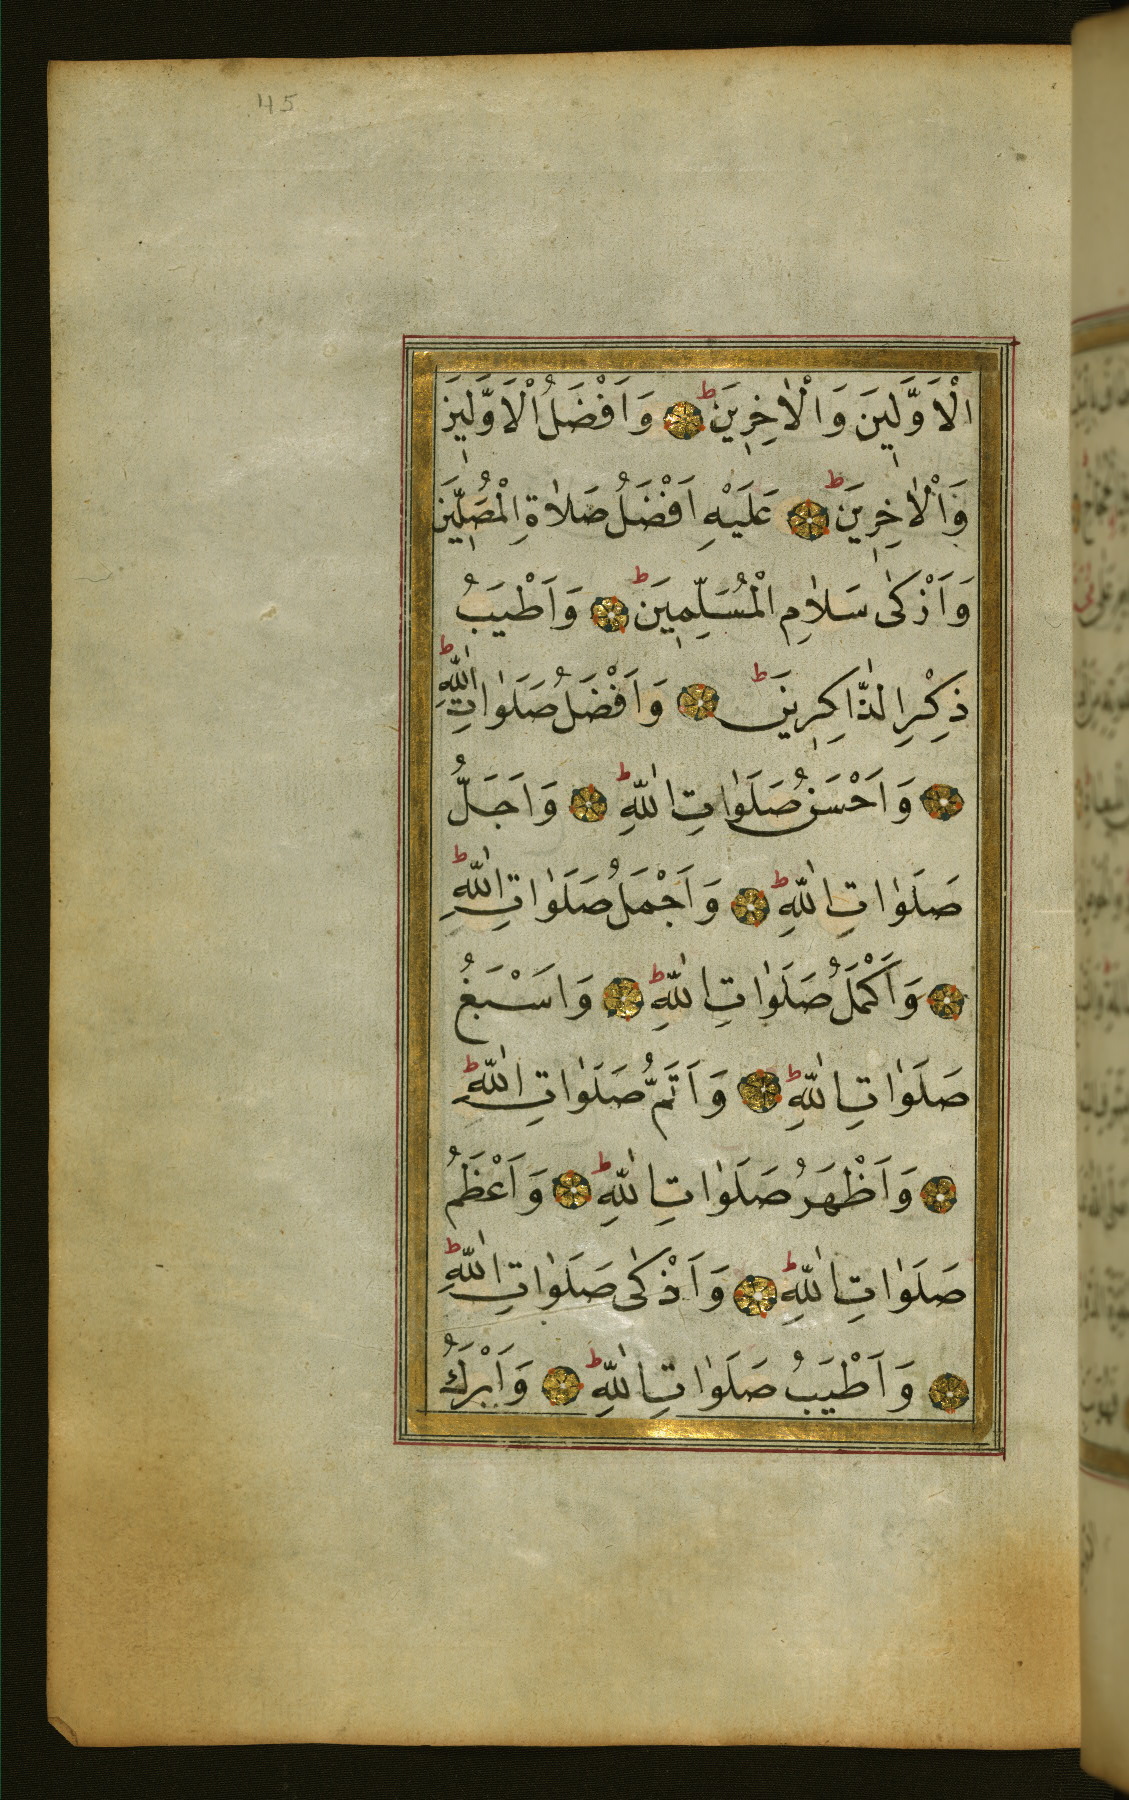 45
الْاَوَّلِينَ وَالْاٰخِرِينَ ط وَاَفْضَلُ الْاَوَّلِينَ
وَالْاٰخِرِينَ ط عَلَيْهِ اَفْضَلُ صَلَاةِ الْمُصَلِّينَ
وَاَزْكٰى سَلَامِ الْمُسَلِّمِينَ ط وَاَطْيَبُ
ذِكْرِ الذَّاكِرِينَ ط وَاَفْضَلُ صَلَوَاتِ اللّٰهِ ط
وَاَحْسَنُ صَلَوَاتِ اللّٰهِ ط وَاَجَلُّ
صَلَوَاتِ اللّٰهِ ط وَاَجْمَلُ صَلَوَاتِ اللّٰهِ ط
وَاَكْمَلُ صَلَوَاتِ اللّٰهِ ط وَاَسْبَغُ
صَلَوَاتِ اللّٰهِ ط وَاَتَمُّ صَلَوَاتِ اللّٰهِ ط
وَاَظْهَرُ صَلَوَاتِ اللّٰهِ ط وَاَعْظَمُ
صَلَوَاتِ اللّٰهِ ط وَاَذْكٰى صَلَوَاتِ اللّٰهِ ط
وَاَطْيَبُ صَلَوَاتِ اللّٰهِ ط وَاَبْرَكُ